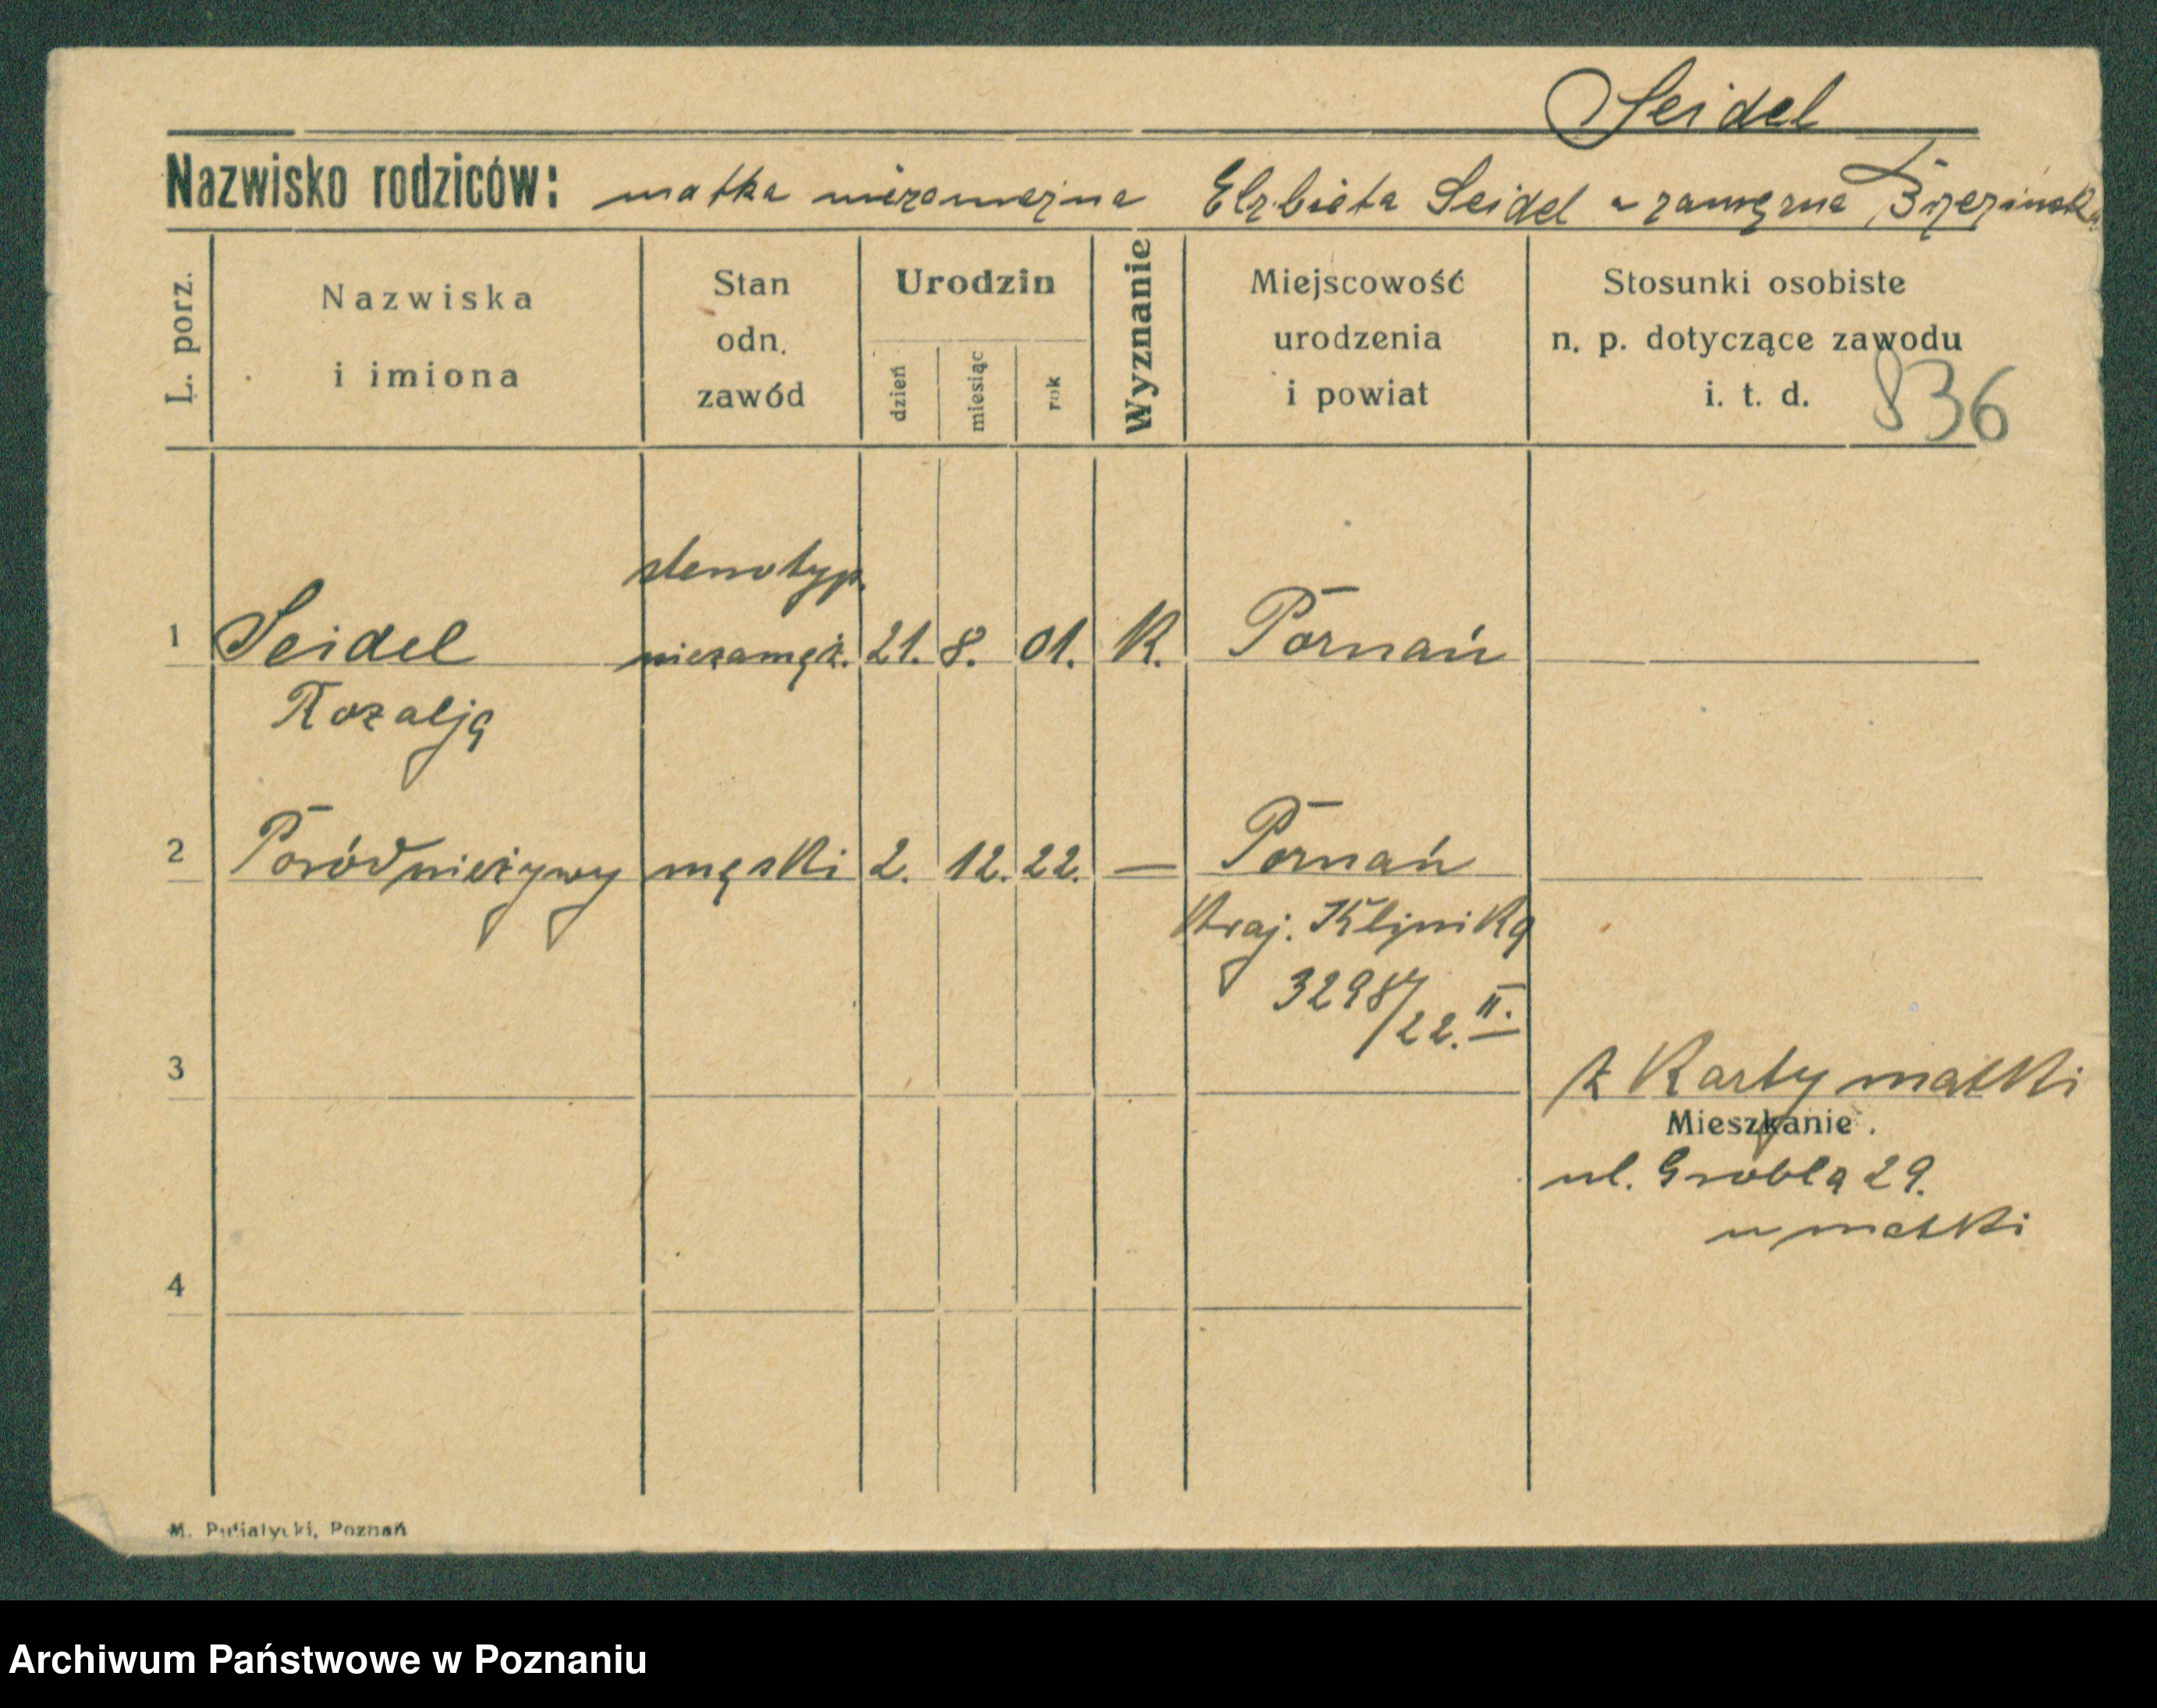 Seidel
Nazwisko rodziców: matka niezamężna Elżbieta Seidel - zamężna Brzezińska
L. porz.
Nazwiska
i imiona
Stan
odn.
zawód
Urodzin
dzień
miesiąc
rok
Wyznanie
Miejscowość
urodzenia
i powiat
Stosunki osobiste
n. p. dotyczące zawodu
i. t. d.
836
stenotyp.
1 Seidel niezamęż. 21. 8. 01. K. Poznań
Rozalja
2 Poród nieżywy męski 2. 12. 22. — Poznań
Kraj. Klinika
3298/22. II.
3
z Karty matki
Mieszkanie.
ul. Grobla 29.
u matki
4
M. Putiatycki, Poznań
Archiwum Państwowe w Poznaniu